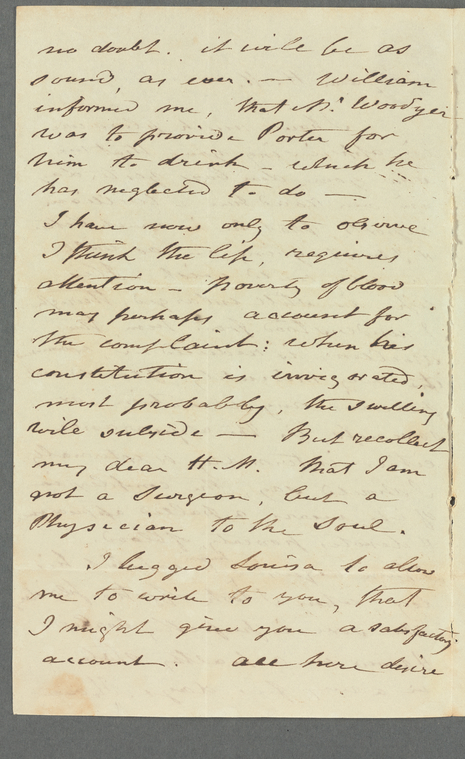 no doubt. it will be as
sound, as ever. — William
informed me, that Mr. Woodyer
was to provide Porter for
him to drink — which he
has neglected to do —
I have now only to observe
I think the lip, requires
attention — poverty of blood
may perhaps account for
the complaint: when his
constitution is invigorated,
most probably, the swelling
will subside — But recollect
my dear H. M. that I am
not a Surgeon, but a
Physician to the Soul.
I begged Louisa to allow
me to write to you, that
I might give you a satisfactory
account. all here desire